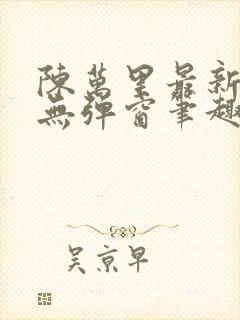 陳萬里最新
無彈窗筆趣
吴京早